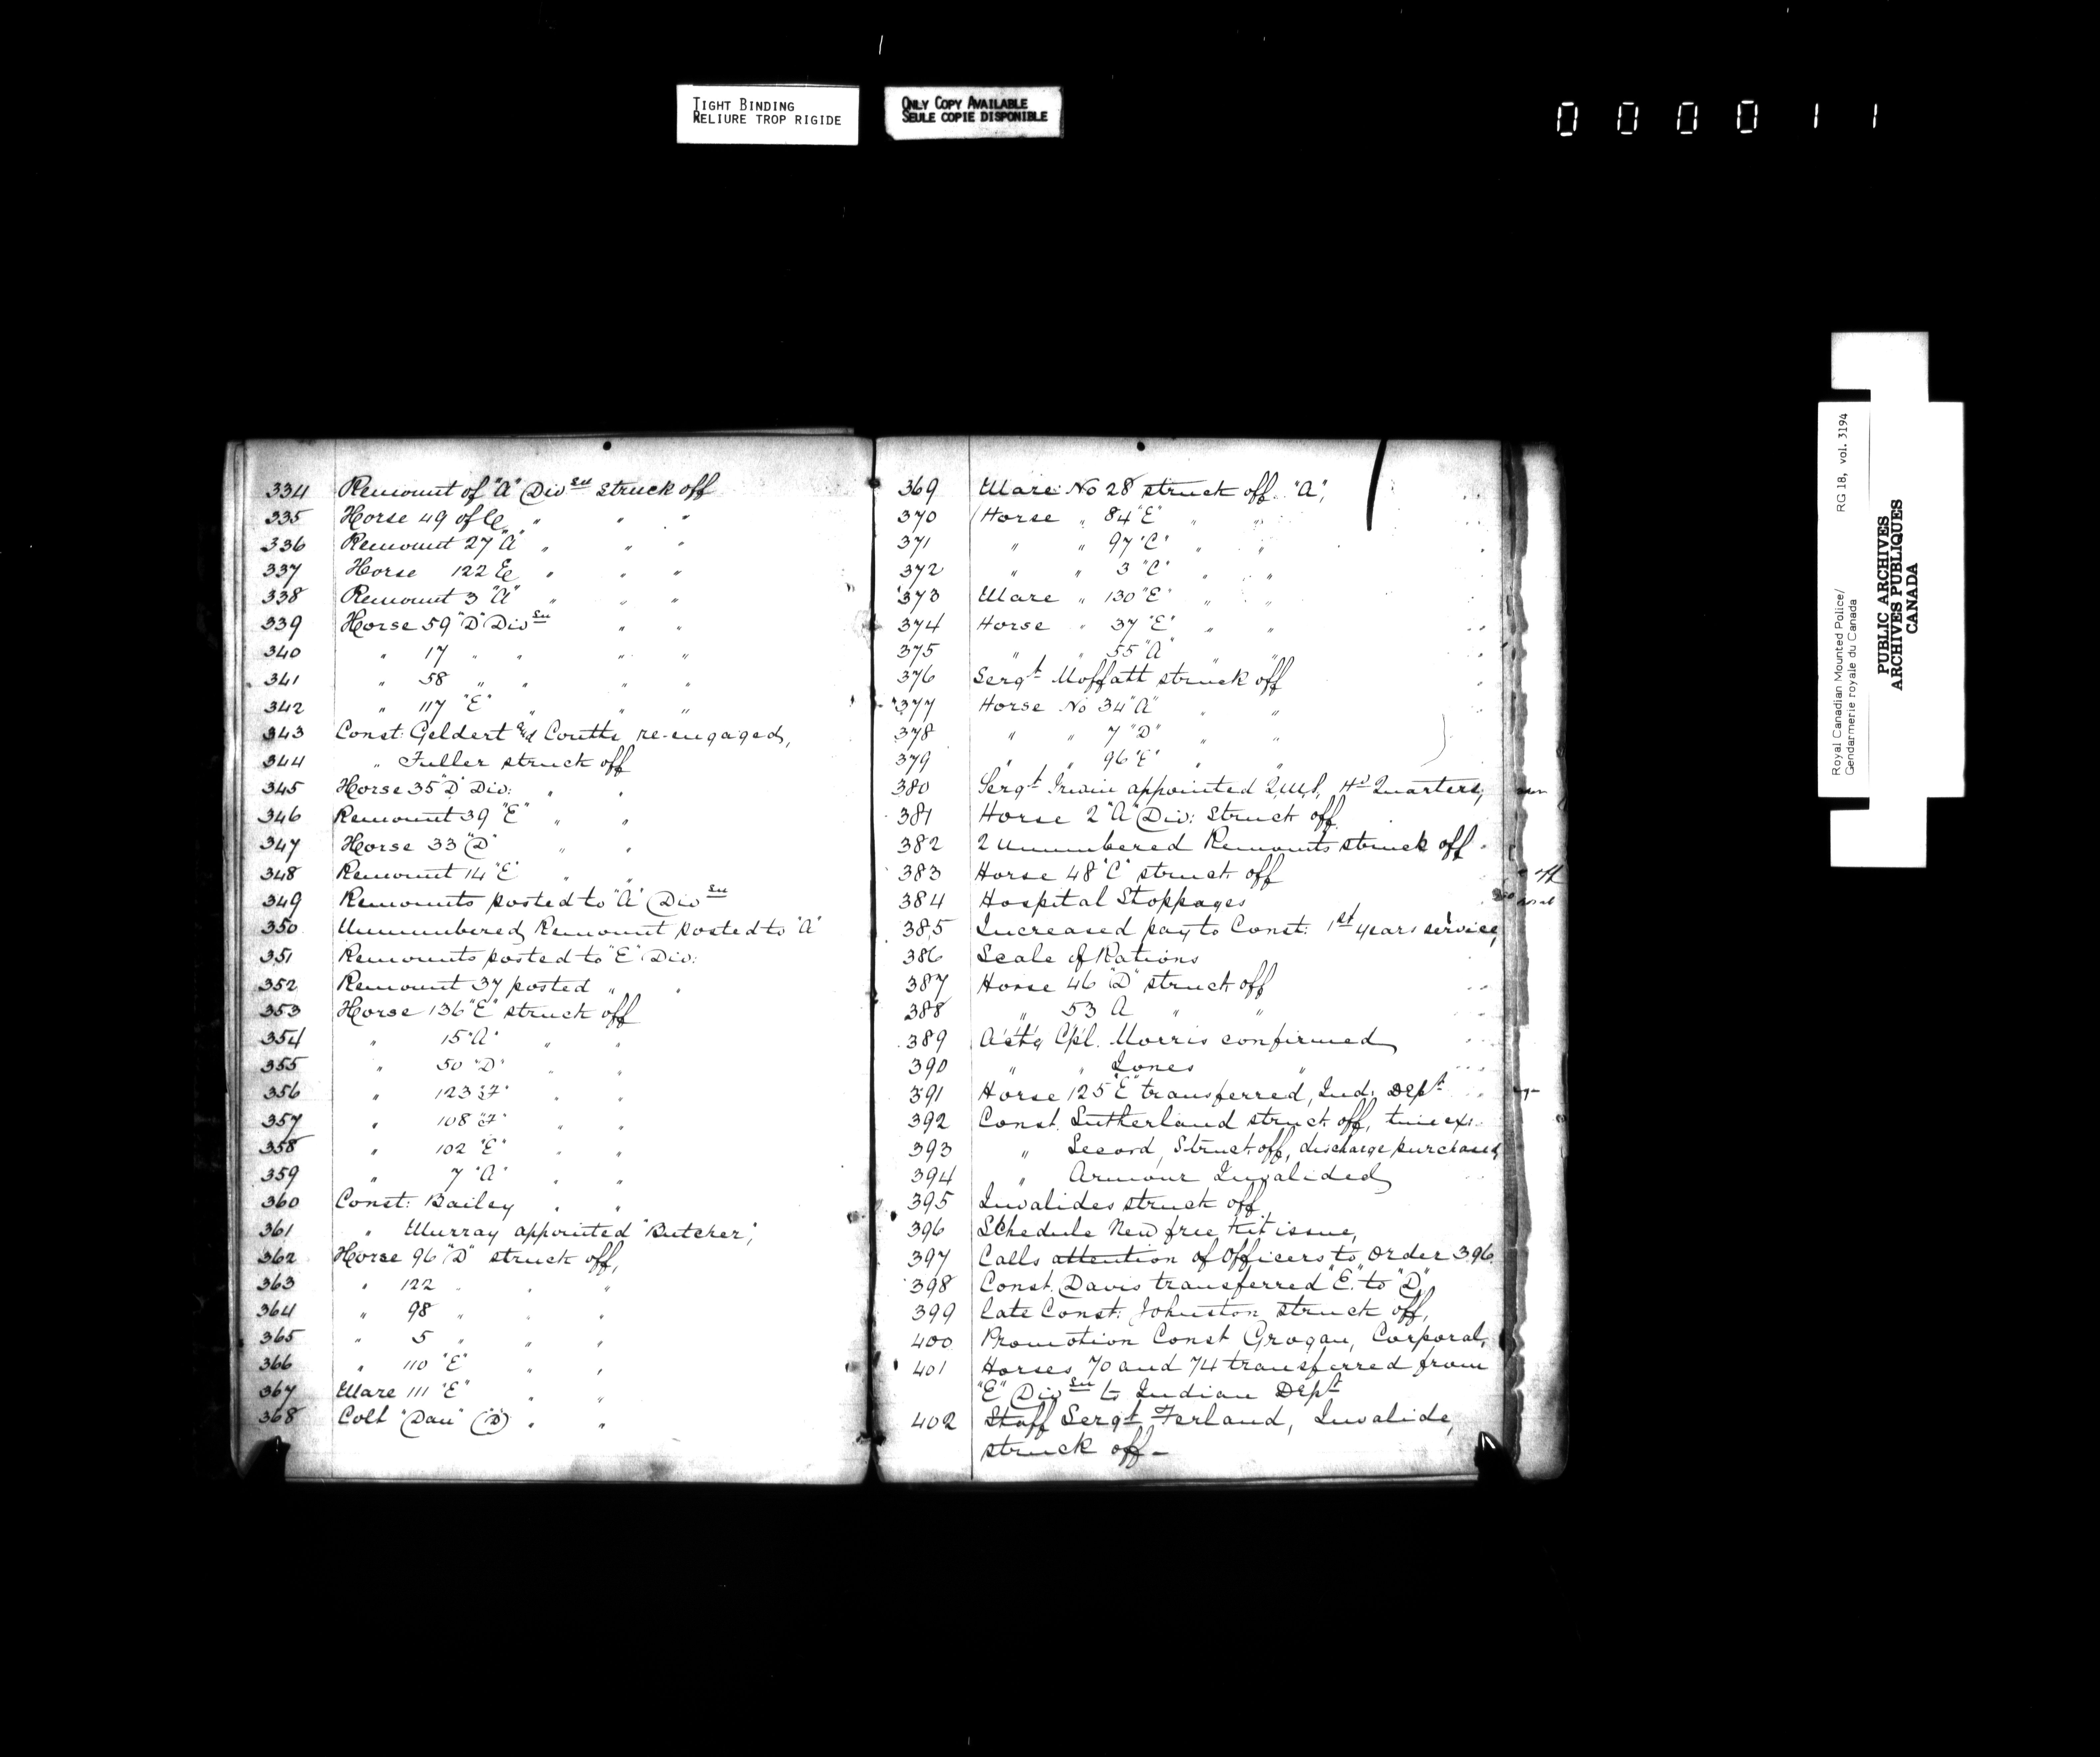 TIGHT BINDING
RELIURE TROP RIGIDE
ONLY COPY AVAILABLE
SEULE COPIE DISPONIBLE
000011
334 Remount of "A" Divsn Struck off
335 Horse 49 of E " " "
336 Remount 27 "A" " " "
337 Horse 122 E " " "
338 Remount 3 "A" " " "
339 Horse 59 "D" Divsn " "
340 " 17 " " " "
341 " 58 " " " "
342 " 117 "E" " " "
343 Const: Geldert and Coutts re-engaged,
344 " Fuller struck off
345 Horse 35 "D" Div: " "
346 Remount 39 "E" " "
347 Horse 33 "D" " "
348 Remount 14 "E" " "
349 Remounts posted to "A" Divsn
350 Unnumbered Remount posted to "A"
351 Remounts posted to "E" Div:
352 Remount 37 posted " "
353 Horse 136 "E" struck off
354 " 15 "A" " "
355 " 50 "D" " "
356 " 123 "F" " "
357 " 108 "F" " "
358 " 102 "E" " "
359 " 7 "A" " "
360 Const: Bailey " "
361 " Murray appointed "Butcher",
362 Horse 96 "D" struck off,
363 " 122 " " "
364 " 98 " " "
365 " 5 " " "
366 " 110 "E" " "
367 Mare 111 "E" " "
368 Colt "Dan" ("D") " "
369 Mare No 28 struck off "A",
370 Horse " 84 "E" " "
371 " " 97 "C" " "
372 " " 3 "C" " "
373 Mare " 130 "E" " "
374 Horse " 37 "E" " "
375 " " 55 "A" " "
376 Sergt Moffatt struck off
377 Horse No 34 "A" " "
378 " " 7 "D" " "
379 " " 96 "E" " "
380 Sergt Irwin appointed Q.M.S. Hd Quarters,
381 Horse 2 "A" Div: Struck off
382 2 Unnumbered Remounts struck off
383 Horse 48 "C" struck off
384 Hospital Stoppages
385 Increased pay to Const: 1st years service,
386 Scale of Rations
387 Horse 46 "D" struck off
388 " 53 A " "
389 Actg Cpl. Morris confirmed
390 " " Jones "
391 Horse 125 "E" transferred, Ind: Dept
392 Const. Sutherland struck off, time ex:
393 " Secord, Struck off, discharge purchased
394 " Armour Invalided
395 Invalides struck off
396 Schedule New free Kit issue,
397 Calls attention of Officers to Order 396.
398 Const. Davis transferred "E" to "D",
399 Late Const: Johnston struck off,
400 Promotion Const Grogan, Corporal,
401 Horses 70 and 74 transferred from
"E" Divsn to Indian Dept
402 Staff Sergt Ferland, Invalide,
struck off -
Royal Canadian Mounted Police/ RG 18, vol. 3194
Gendarmerie royale du Canada
PUBLIC ARCHIVES
ARCHIVES PUBLIQUES
CANADA